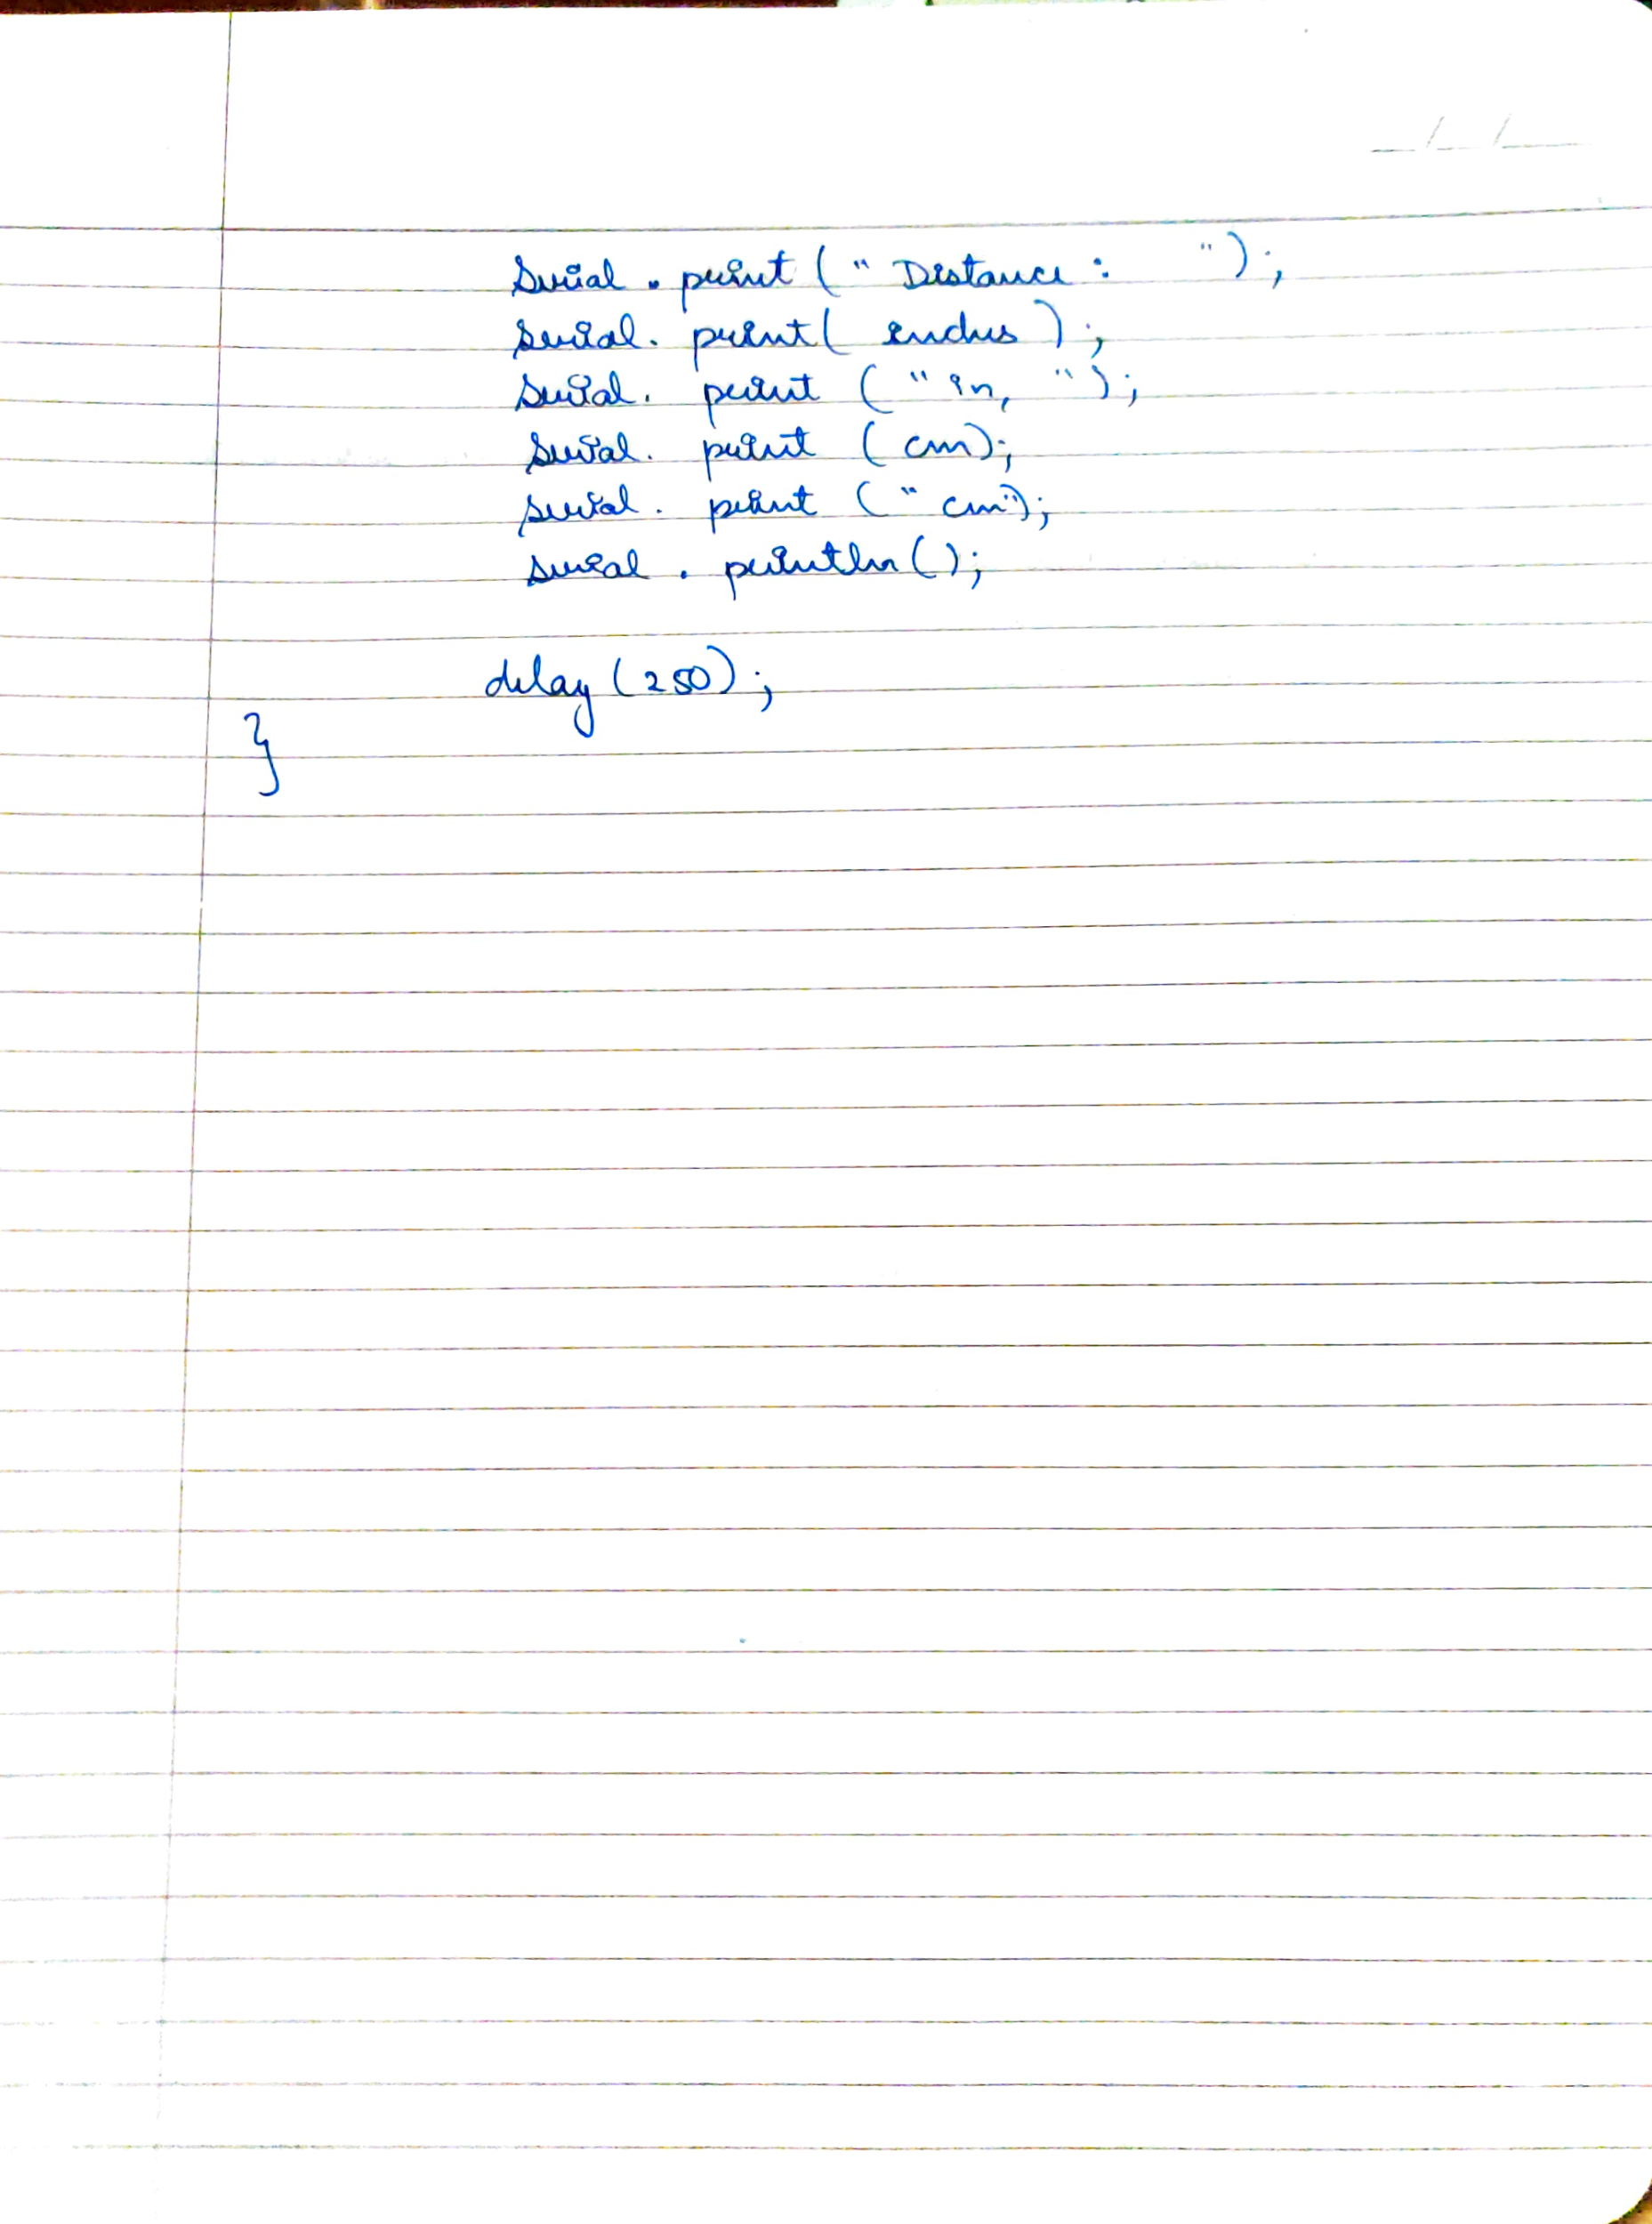 Serial . print (" Distance :      ");
Serial. print( inches );
Serial. print ( " in,   ");
Serial. print ( cm);
Serial. print (" cm");
Serial . println();
delay (250);
}